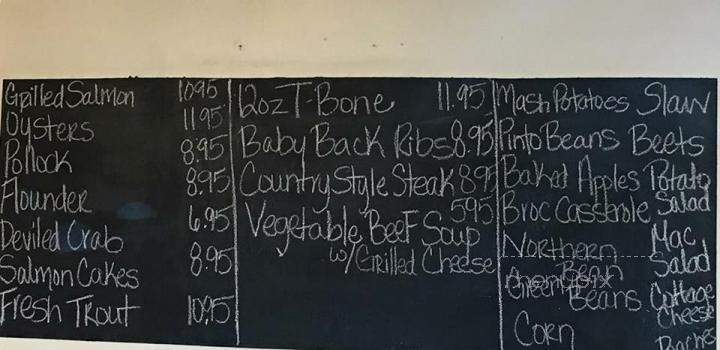 Grilled Salmon 10.95
Oysters 11.95
Pollock 8.95
Flounder 8.95
Deviled Crab 6.95
Salmon Cakes 8.95
Fresh Trout 10.95
12oz T-Bone 11.95
Baby Back Ribs 8.95
Country Style Steak 8.95
Vegetable Beef Soup 5.95
w/Grilled Cheese
Mash Potatoes Slaw
Pinto Beans Beets
Baked Apples Potato Salad
Broc Casserole
Northern Bean
Mac Salad
Green Beans
Cottage Cheese
Corn